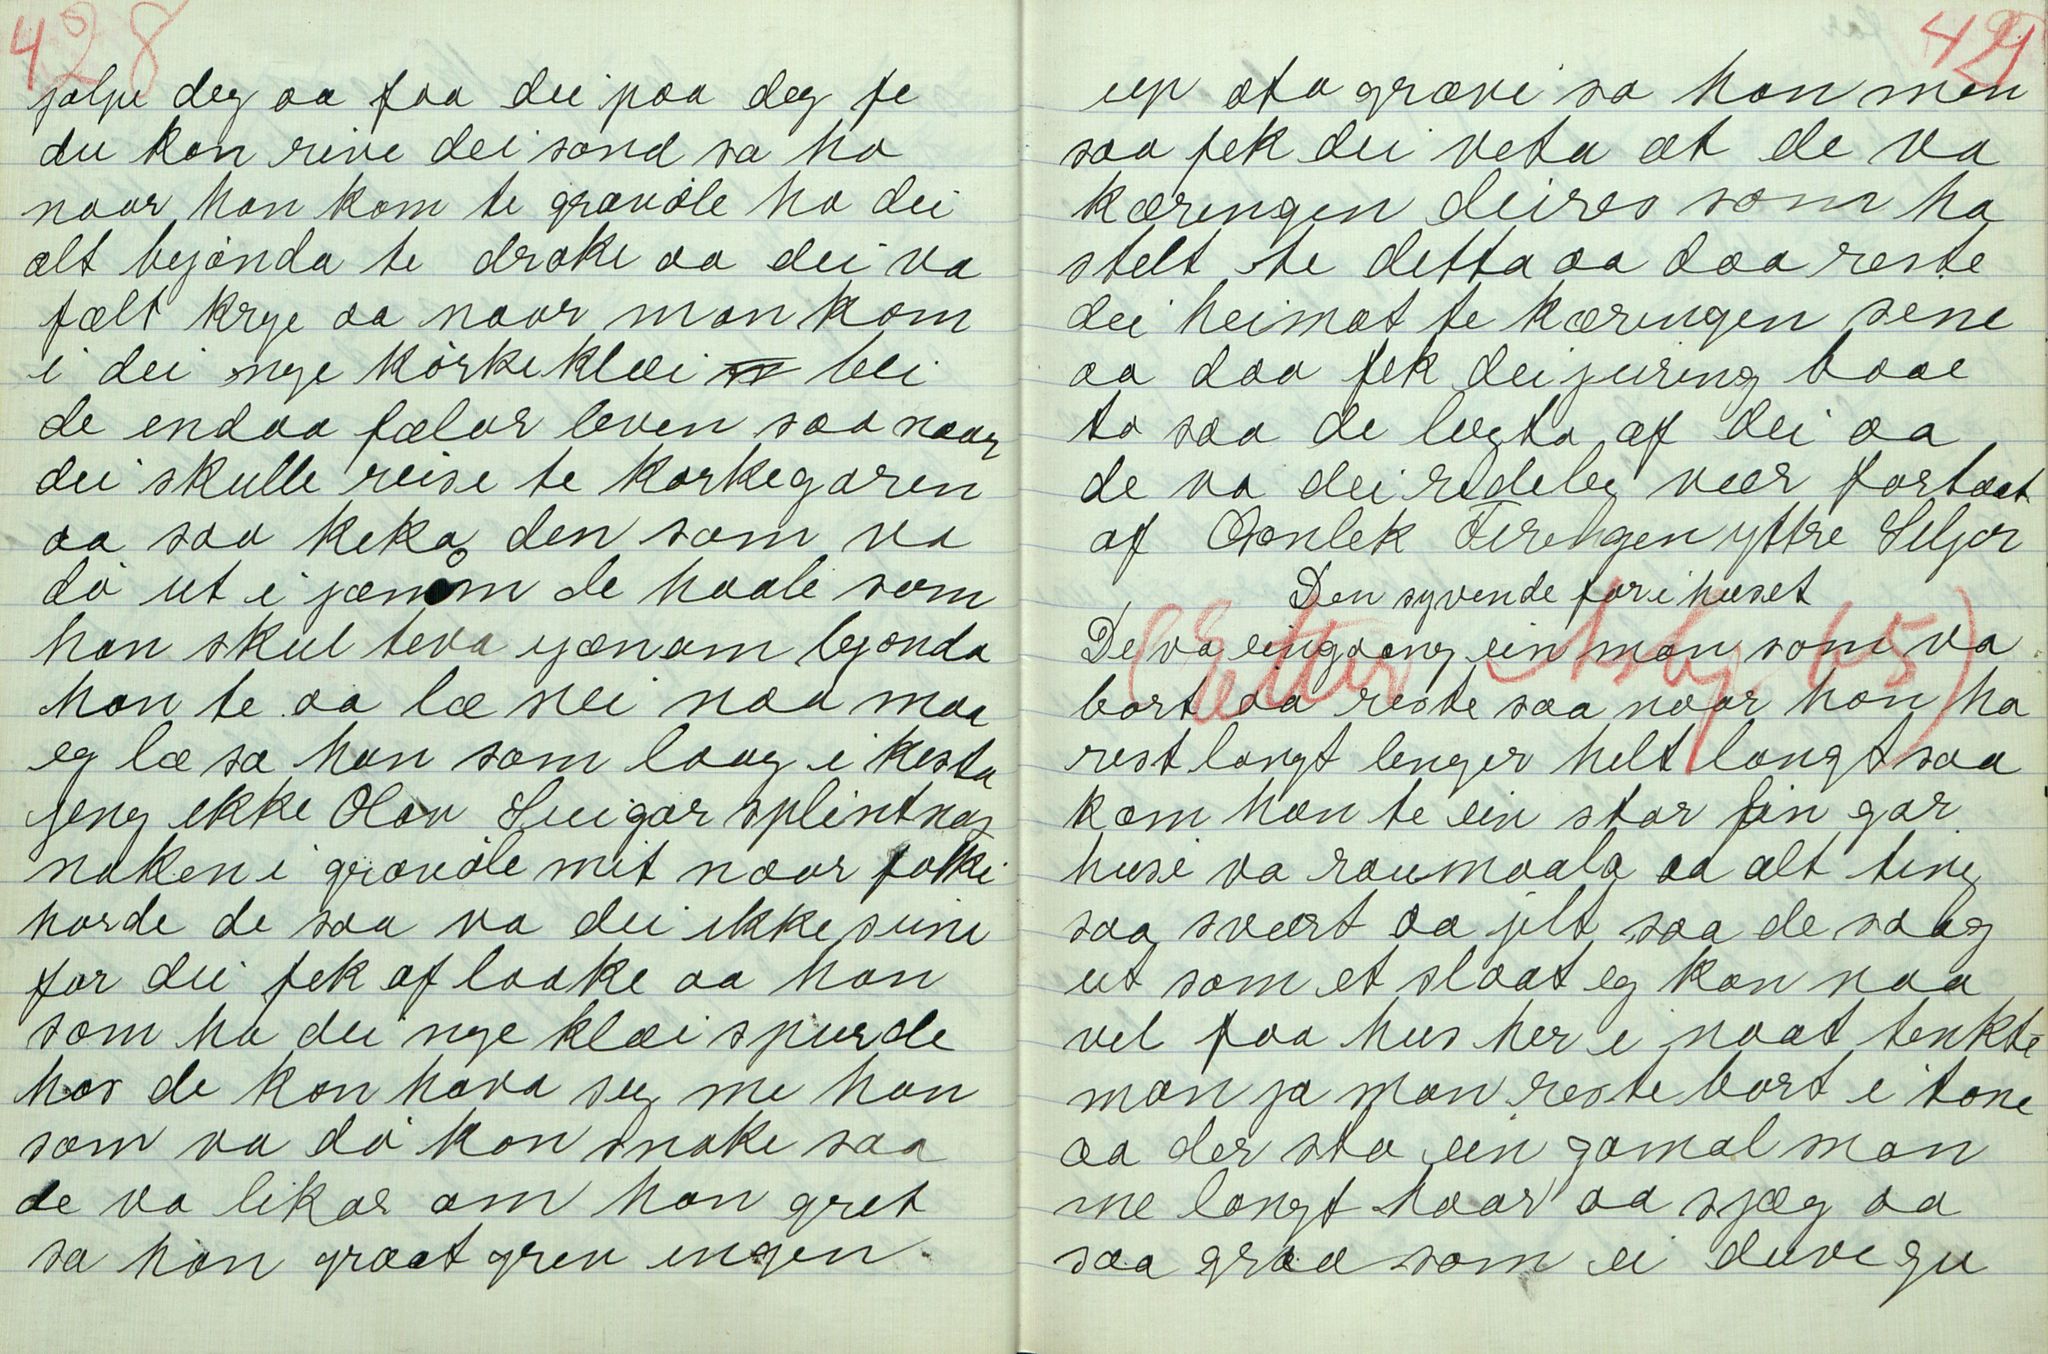 428
jølpe deg aa faa dei paa deg fe
du kan rive dei sond sa ho
naar han kom te gravøle ha dei
alt bejønda te drøke aa dei va
fælt krye aa naar man kom
i dei nye kørkeklæi blei
de endaa fælar leven saa naar
dei skulle reise te kørkegaren
aa saa keka den som va
dø ut i jænom de haale som
han skul teva ijænom bejonda
han te aa læ nei naa maa
eg læ sa han som laag i kesta
jeng ikke Olav Suigar splintnag
naken i gravøle mit naar folki
hørde de saa va dei ikke seine
for dei fek af laake aa han
som ha dei nye klæi spurde
hos de kan hava seg me han
som va dø kan snake saa
de va likar om han gret
sa han graat grev ingen
429
up ota grævi sa han men
saa fek dei veta at de va
kæringen deires som ha
stelt te detta aa daa reste
dei heimat te kæringen sine
aa daa fek dei juring baae
to saa de lugta af dei aa
de va dei redeleg vær fortaat
af Anlek Tirehgen yttre Seljor
Den syvende far i huset
(Etter Asbj. 65)
De va eingaang ein man som va
bort aa reste saa naar han ha
rest langt lenger helt langt saa
kom han te ein stor fin gar
husi va raumaala aa alt ting
saa svært aa jilt saa de saag
ut som et slaat eg kan naa
vel faa hus her i naat tenkte
man ja man reste bort i tone
aa der sto ein gamal man
me langt haar aa sjæg aa
saa graa som ei duve gu